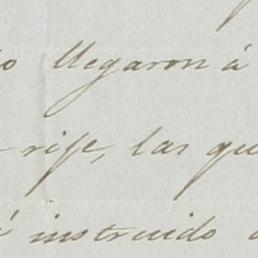 llegaron á
rife, las que
instruido